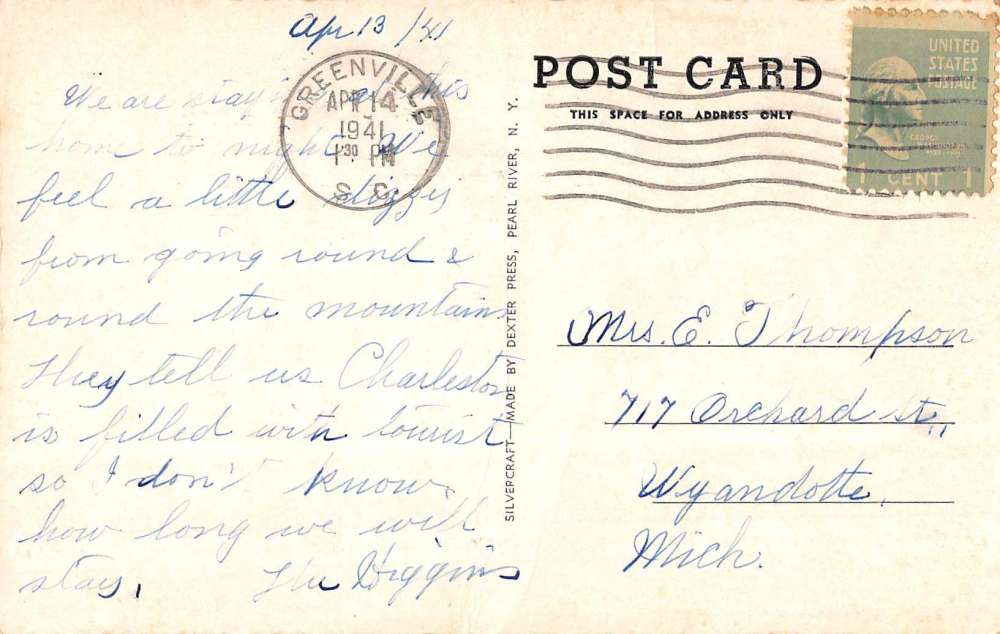 Apr 13/41
We are staying at this
home to night. We
feel a little dizzy
from going round &
round the mountains
They tell us Charleston
is filled with tourist
so I don't know
how long we will
stay. The Higgins
GREENVILLE
APR 14
1941
1 30 PM
S. C.
SILVERCRAFT—MADE BY DEXTER PRESS, PEARL RIVER, N. Y.
POST CARD
THIS SPACE FOR ADDRESS ONLY
UNITED
STATES
POSTAGE
GEORGE
WASHINGTON
1 CENT 1
Mrs. E. Thompson
717 Orchard st.,
Wyandotte,
Mich.